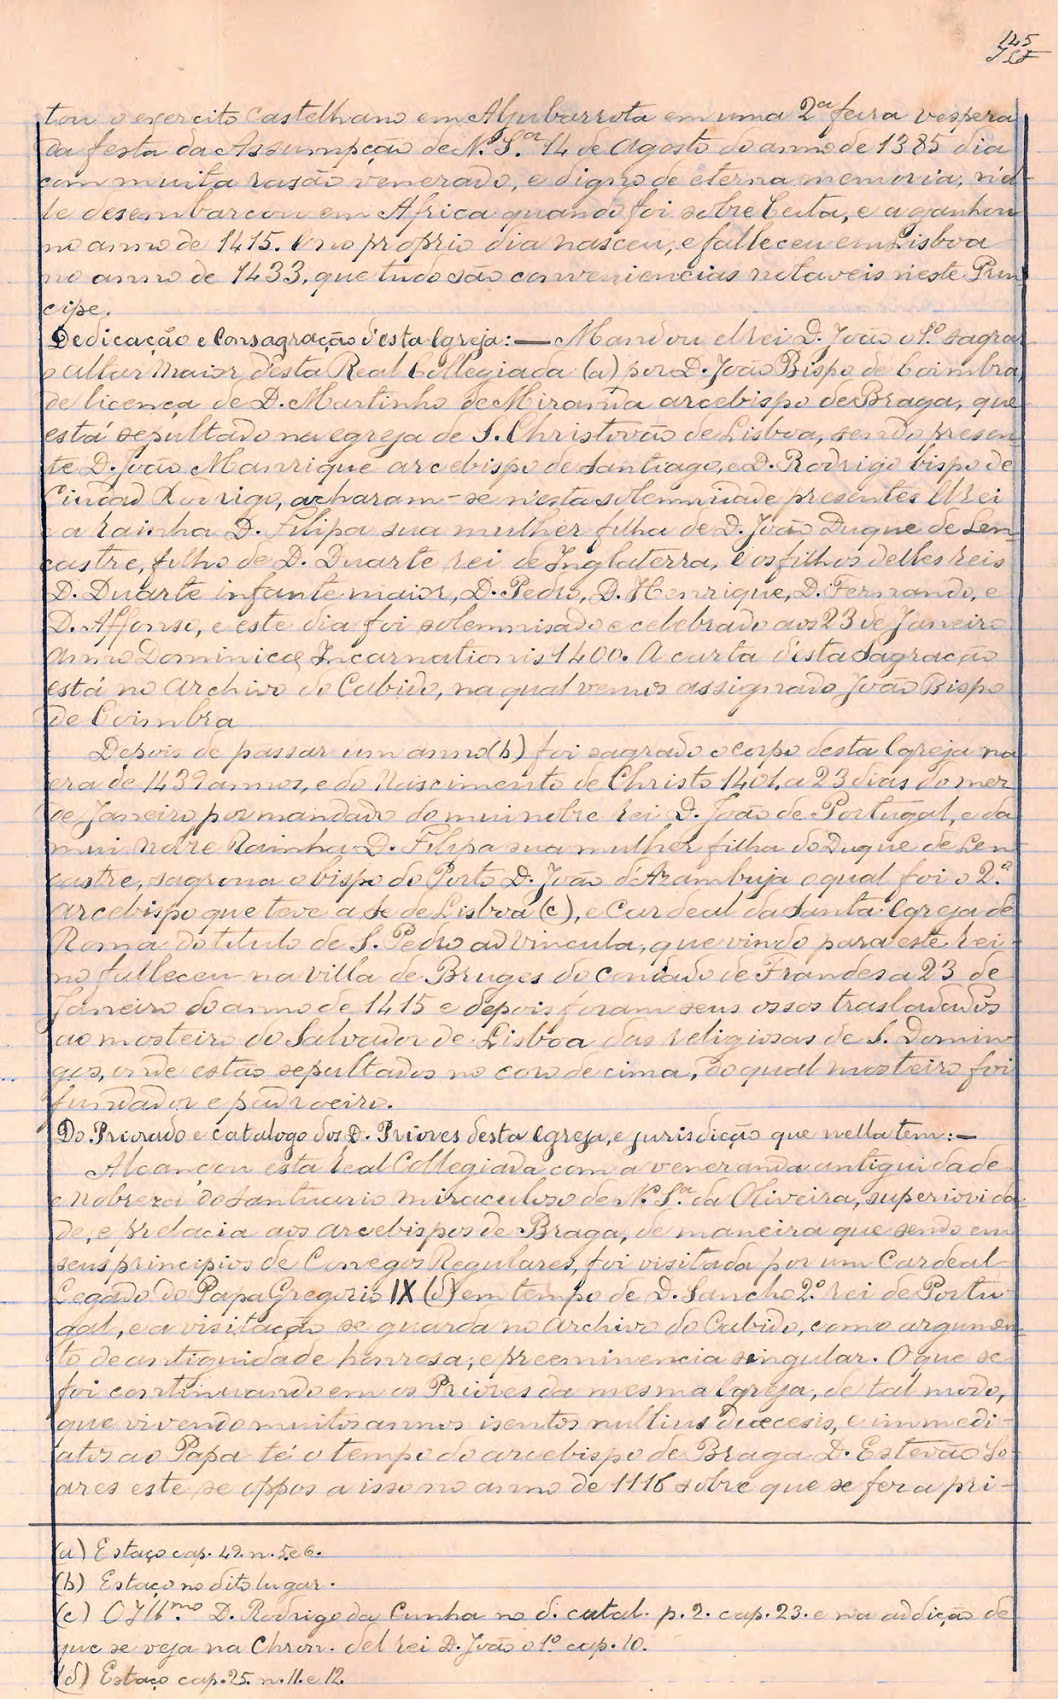 145
tou o exercito Castelhano em Aljubarrota em uma 2ª feira vespera
da festa da Assumpção de N. S.ª 14 de Agosto do anno de 1385 dia
com muita rasão venerado, e digno de eterna memoria; n'el-
le desembarcou em Africa quando foi sobre Ceita, e a ganhou
no anno de 1415. E no proprio dia nasceu, e falleceu em Lisboa
no anno de 1433, que tudo são conveniencias notaveis n'este Prin
cipe.
Dedicação e Consagração d'esta Igreja: — Mandou el rei D. João o 1º sagrar
o altar maior d'esta Real Collegiada (a) por D. João Bispo de Coimbra,
de licença de D. Martinho de Miranda arcebispo de Braga, que
está sepultado na egreja de S. Christovão de Lisboa, sendo presen-
te D. João Manrique arcebispo de Santiago, e D. Rodrigo bispo de
Ciudad Rodrigo, acharam-se n'esta solemnidade presentes El rei
e a rainha D. Filipa sua mulher filha de D. João Duque de Len-
castre, filho de D. Duarte rei de Inglaterra, e os filhos delles reis
D. Duarte infante maior, D. Pedro, D. Henrique, D. Fernando, e
D. Affonso, e este dia foi solemnisado e celebrado aos 23 de Janeiro
Anno Dominicæ Incarnationis 1400. A carta d'esta Sagração
está no Archivo do Cabido, na qual vemos assignado João Bispo
de Coimbra
Depois de passar um anno (b) foi sagrado o corpo desta Igreja na
era de 1439 annos, e do Nascimento de Christo 1401, a 23 dias do mez
de Janeiro por mandado do mui nobre rei D. João de Portugal, e da
mui nobre Rainha D. Filipa sua mulher filha do Duque de Len-
castre, sagrou-a o bispo do Porto D. João d'Azambuja o qual foi o 2.º
arcebispo que teve a Se de Lisboa (c), e Cardeal da Santa Igreja de
Roma do titulo de S. Pedro ad vincula, que vindo para este rei-
no falleceu na villa de Bruges do condado de Frandes a 23 de
Janeiro do anno de 1415 e depois foram seus ossos trasladados
ao mosteiro do Salvador de Lisboa das religiosas de S. Domin-
gos, onde estão sepultados no coro de cima, do qual mosteiro foi
fundador e padroeiro.
Do Priorado e catalogo dos D. Priores desta Igreja, e jurisdicção que nella tem: —
Alcançou esta Real Collegiada com a veneranda antiguidade
e Nobreza do Santuario miraculoso de N. S.ª da Oliveira, superiorida-
de, e prelacia aos arcebispos de Braga, de maneira que sendo em
seus principios de Conegos Regulares, foi visitada por um Cardeal
Legado do Papa Gregorio IX (d) em tempo de D. Sancho 2.º rei de Portu-
gal, e a visitação se guarda no Archivo do Cabido, como argumen-
to de antiguidade honrosa, e preeminencia singular. O que se
foi continuando em os Priores da mesma Igreja, de tal modo,
que vivendo muitos annos isentos nullius diœcesis, e immedi-
atos ao Papa té o tempo do arcebispo de Braga D. Estevão So-
ares este se oppos a isso no anno de 1116 sobre que se fora pri-
(a) Estaço cap. 42. n. 5. e 6.
(b) Estaço no dito lugar.
(c) O Ill.mo D. Rodrigo da Cunha no d. catal. p. 2. cap. 23. e na addição de
que se veja na Chron. del rei D. João o 1º cap. 10.
(d) Estaço cap. 25. n. 11. e 12.